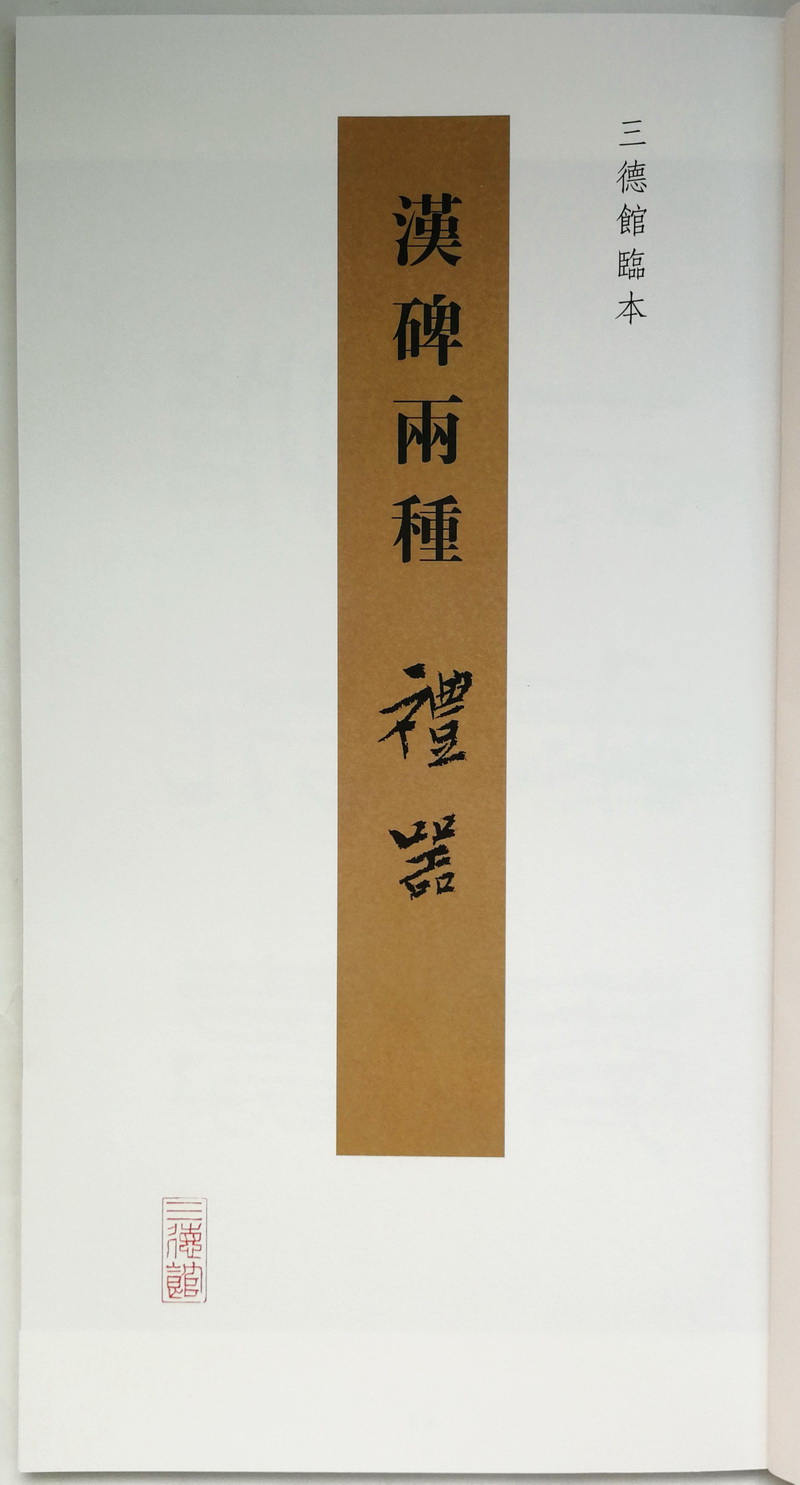 三德館臨本
漢碑兩種 禮器
三德館